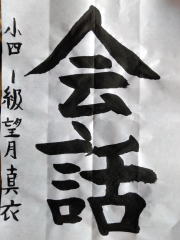 会話
小四 1級 望月真衣